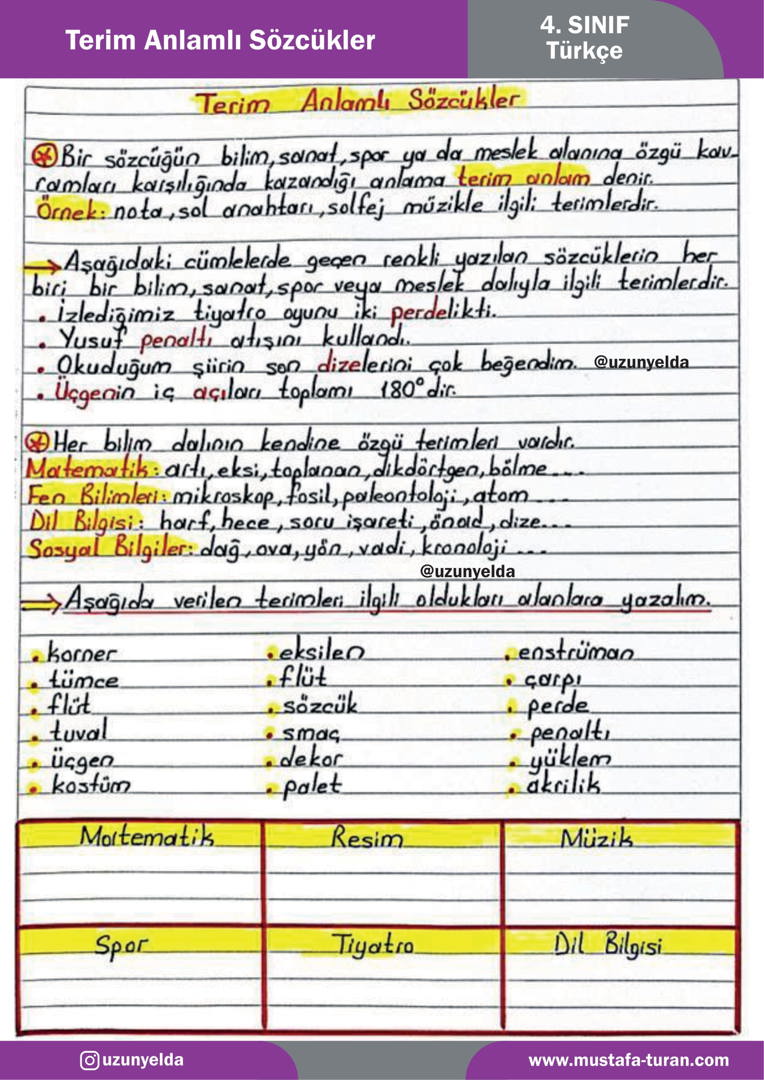 Terim Anlamlı Sözcükler
4. SINIF
Türkçe
Terim Anlamlı Sözcükler
Bir sözcüğün bilim, sanat, spor ya da meslek alanına özgü kav-
ramları karşılığında kazandığı anlama terim anlam denir.
Örnek: nota, sol anahtarı, solfej müzikle ilgili terimlerdir.
→ Aşağıdaki cümlelerde geçen renkli yazılan sözcüklerin her
biri bir bilim, sanat, spor veya meslek dalıyla ilgili terimlerdir.
• İzlediğimiz tiyatro oyunu iki perdelikti.
• Yusuf penaltı atışını kullandı.
• Okuduğum şiirin son dizelerini çok beğendim. @uzunyelda
• Üçgenin iç açıları toplamı 180° dir.
Her bilim dalının kendine özgü terimleri vardır.
Matematik: artı, eksi, toplanan, dikdörtgen, bölme...
Fen Bilimleri: mikroskop, fosil, paleontoloji, atom...
Dil Bilgisi: harf, hece, soru işareti, önad, dize...
Sosyal Bilgiler: dağ, ova, yön, vadi, kronoloji...
@uzunyelda
→ Aşağıda verilen terimleri ilgili oldukları alanlara yazalım.
• korner • eksilen • enstrüman
• tümce • flüt • çarpı
• flüt • sözcük • perde
• tuval • smaç • penaltı
• üçgen • dekor • yüklem
• kostüm • palet • akrilik
Matematik Resim Müzik
Spor Tiyatro Dil Bilgisi
uzunyelda
www.mustafa-turan.com